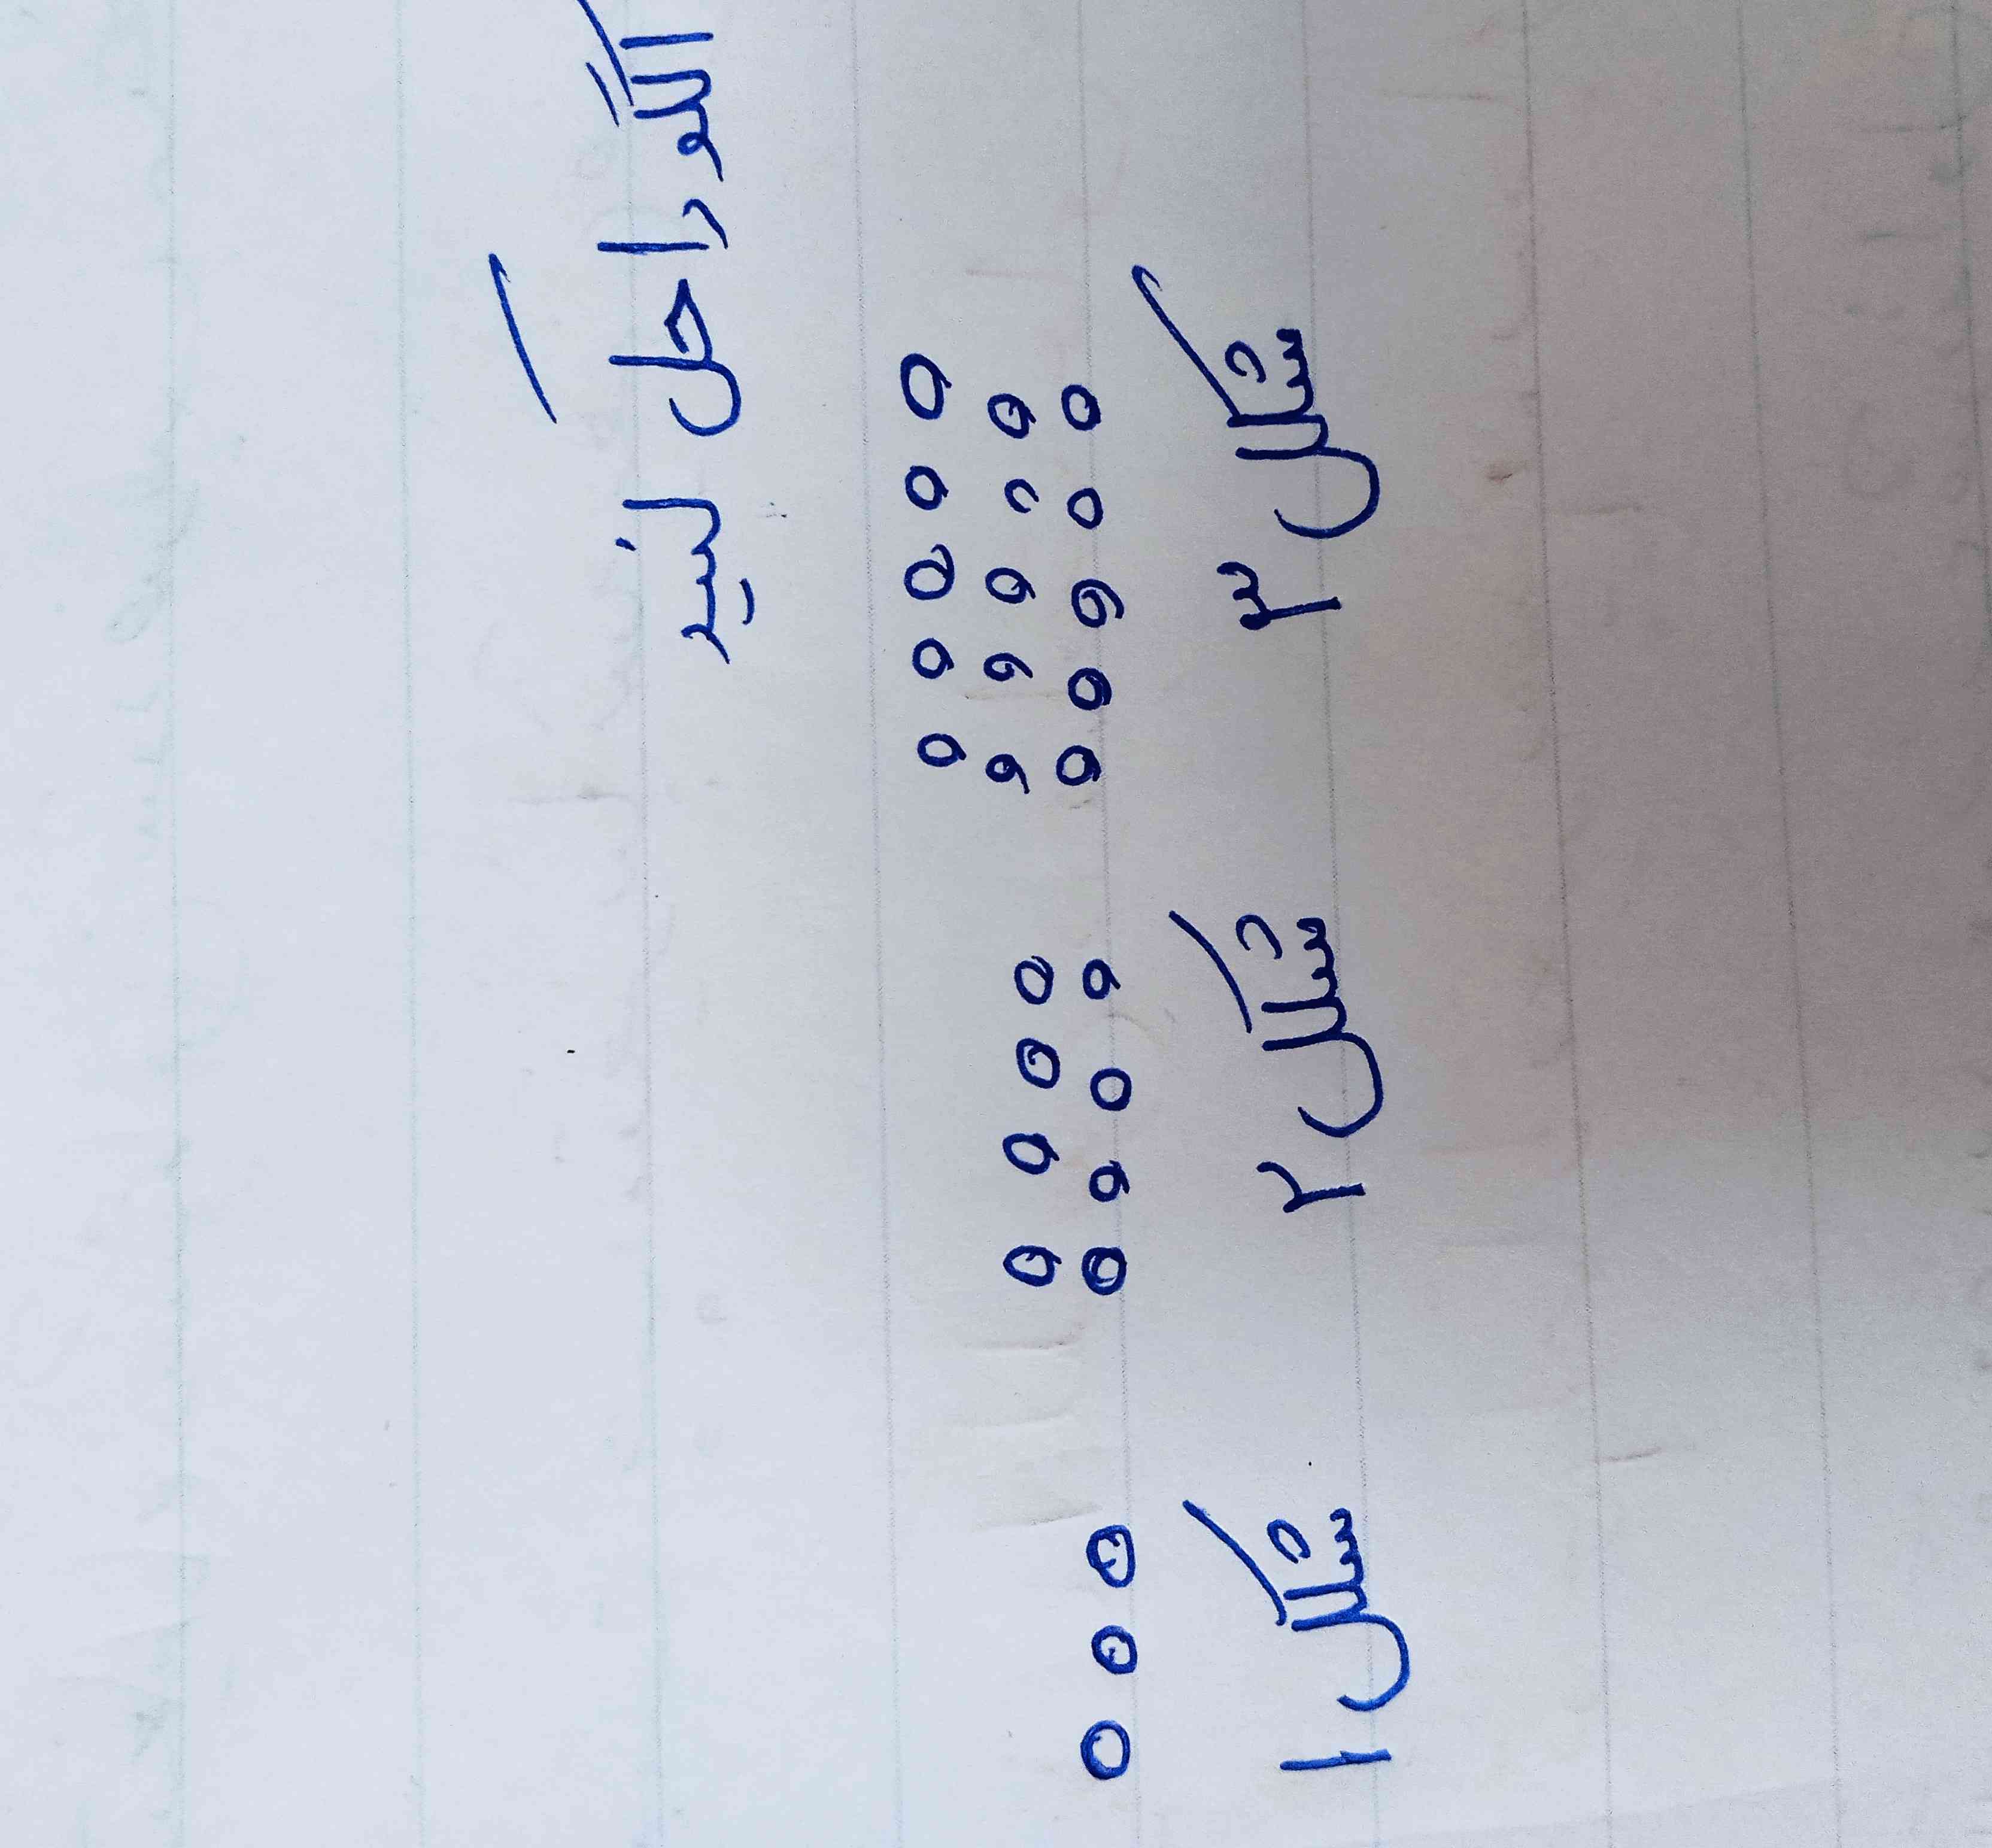 الگو را حل کنید
شکل ۱ شکل ۲ شکل ۳